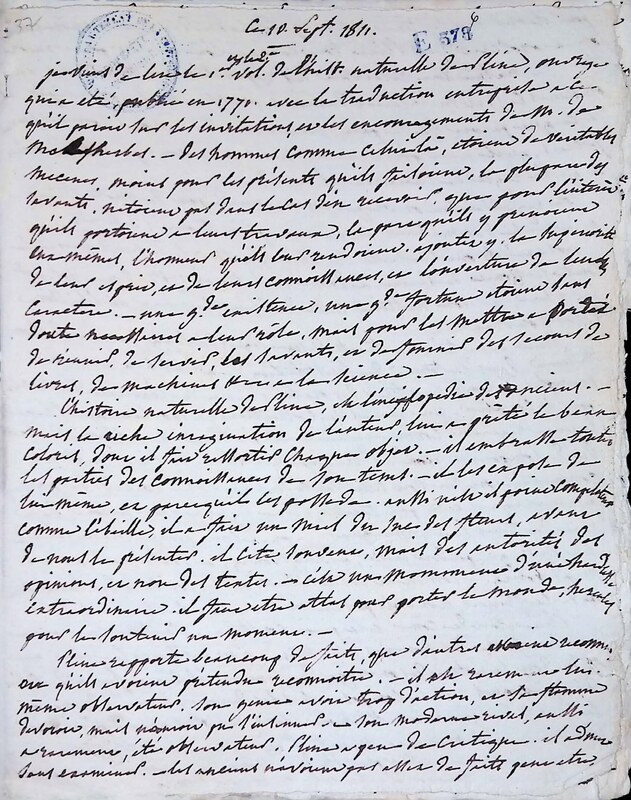 37
Ce 10. Sept. 1811.
E 578
6
je viens de lire le 1er vol. de l'hist. naturelle de Pline, ouvrage
et le 2e
qui a été publié en 1770. avec la traduction entreprise a ce
qu'il paroit sur les invitations et les encouragements de M. de
Malesherbes. — des hommes comme celui là, etoient de veritables
mecenes, moins pour les présents qu'ils faisoient, la plupart des
savants, n'etoient pas dans le cas d'en recevoir, que pour l'interet
qu'ils portoient a leurs travaux, la part qu'ils y prenoient
eux-mêmes, l'honneur qu'ils leur rendoient, ajoutez y, la superiorité
de leur esprit, et de leurs connoissances, et l'ouverture de leur
caractere. — une gde existence, une gde fortune etoient sans
doute necessaires a leur rôle, mais pour les mettre a portée
de reunir, de servir, les savants, et de fournir des secours de
livres, de machines &c a la science. —
L'histoire naturelle de Pline, est l'enciclopedie des anciens. —
mais la riche imagination de l'auteur, lui a prêté le beau
coloris, dont il fait ressortir chaque objet. — il embrasse toutes
les parties des connoissances de son tems. — il les expose de
lui-même, et parcequ'il les possede. aussi n'est il point compilateur
comme l'abeille, il a fait un miel du suc des fleurs, avant
de nous le présenter. il cite souvent, mais des autorités, des
opinions, et non des textes. — c'est un monument d'une hardiesse
extraordinaire. il faut etre atlas pour porter le monde, hercule
pour le soutenir un moment. —
Pline rapporte beaucoup de faits, que d'autres avoient reconnu
ou qu'ils avoient pretendu reconnoitre. — il est rarement lui
même observateur. son genie avoit trop d'action, et sa flamme
devoroit, mais n'avoit pu l'... son moderne rival, aussi
a rarement, été observateur. Pline a peu de critique. il admet
sans examiner. — les anciens n'avoient pas assez de faits pour etre